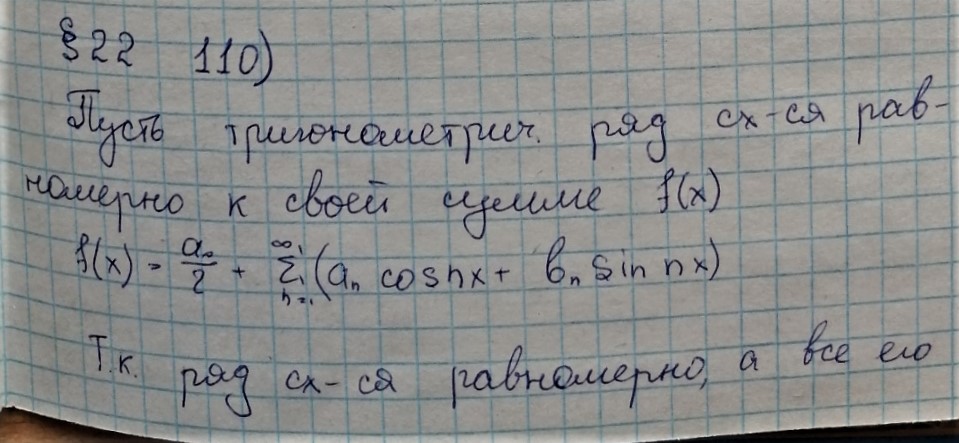 § 22 110)
Пусть тригонометрич. ряд сх-ся рав-
номерно к своей сумме f(x)
f(x) = a₀/2 + ∞∑n=1 (aₙ cos nx + bₙ sin nx)
Т.к. ряд сх-ся равномерно, а все его